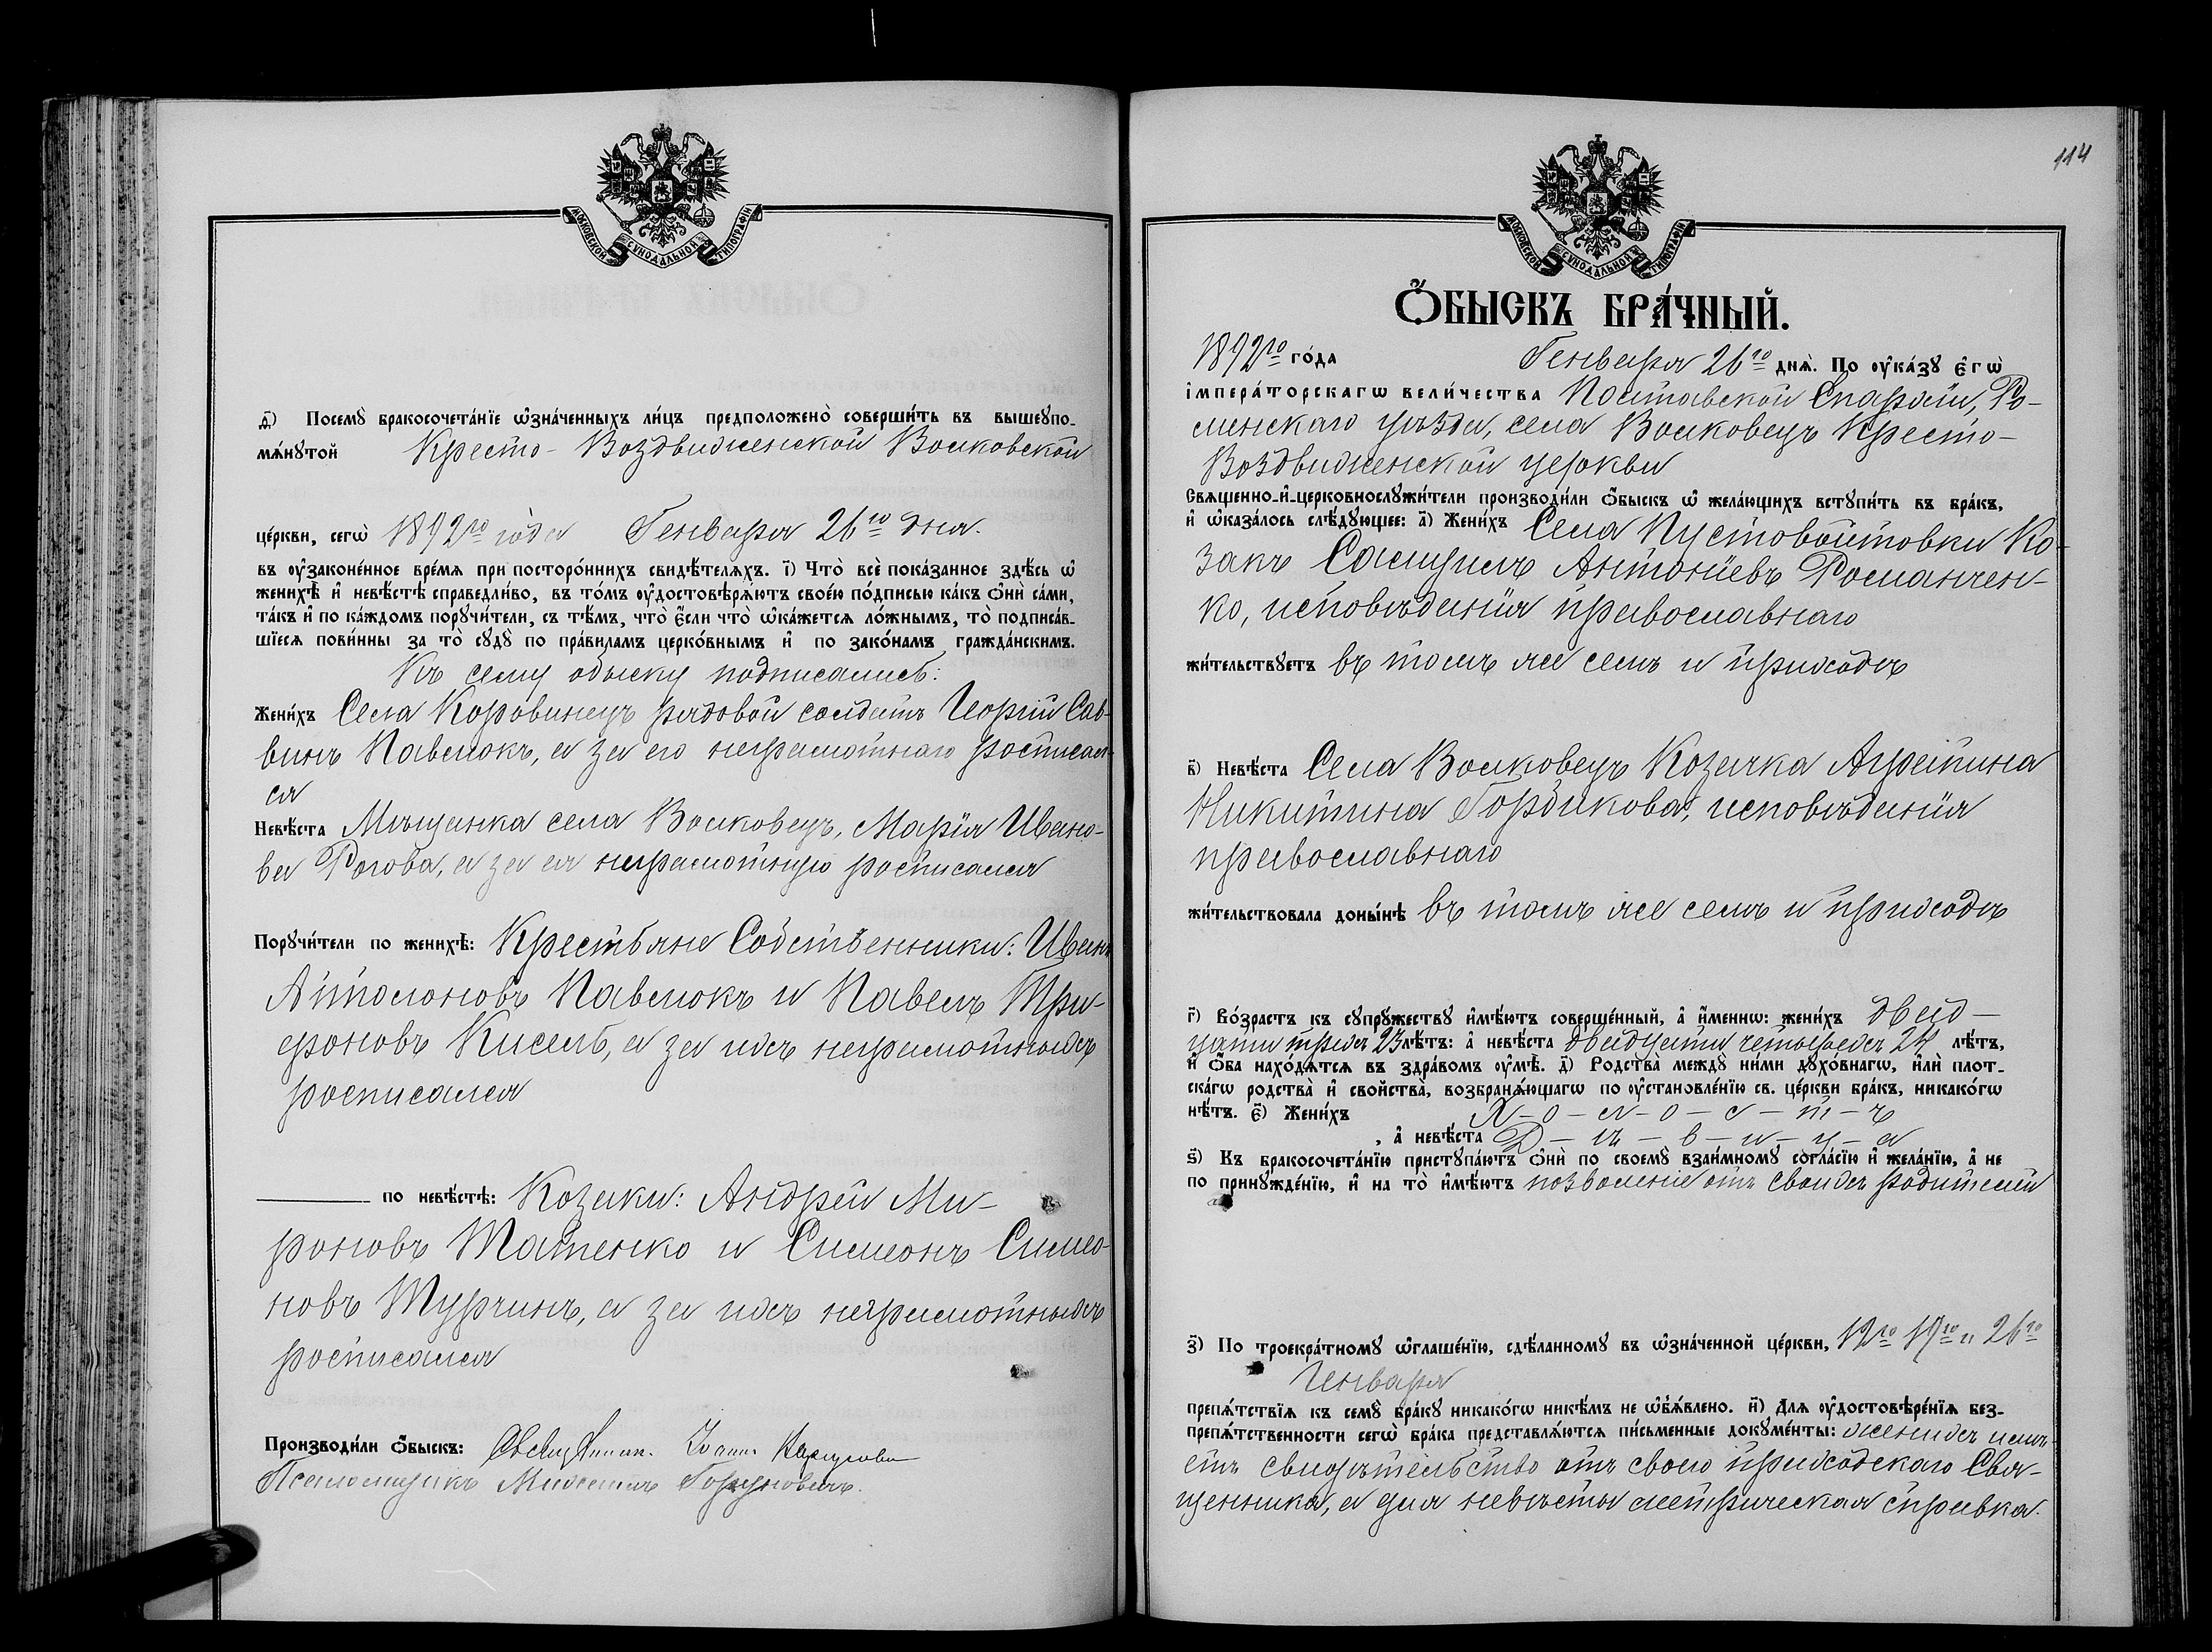 МОСКОВСКОЙ СУНОДАЛЬНОЙ ТИПОГРАФІИ
д҃) Посемꙋ̀ бракосочета́нїе ѡ҆зна́ченныхъ ли́цъ предположено̀ соверши́ть въ вышеꙋпо-
мѧ́нꙋтой Кресто-Воздвиженской Волковской
це́ркви, сегѡ̀ 1892го года Генваря 26го дня.
въ ᲂу҆законе́нное вре́мѧ при посторо́ннихъ свидѣ́телѧхъ. і҃) Что̀ всѐ пока́занное здѣ́сь ѡ҆
женихѣ̀ и҆ невѣ́стѣ справедли́во, въ то́мъ ᲂу҆достовѣрѧ́ютъ свое́ю по́дписью ка́къ ѻ҆нѝ са́ми,
та́къ и҆ по ка́ждомъ порꙋчи́тели, съ тѣ́мъ, что̀ є҆́сли что̀ ѡ҆ка́жетсѧ ло́жнымъ, то̀ подписа́в-
шїесѧ пови́нны за то̀ сꙋдꙋ̀ по пра́виламъ церко́внымъ и҆ по зако́намъ гражда́нскимъ.
Къ сему обыску подписались:
Жени́хъ Села Коровинецъ рядовой солдатъ Георгій Сав-
винъ Павлюкъ, а за его неграмотнаго росписал-
ся
Невѣ́ста Мѣщанка села Волковецъ, Марія Ивано-
ва Рогова, а за ея неграмотную росписался
Порꙋчи́тели по женихѣ̀: Крестьяне Собственники: Иванъ
Антоновъ Павлюкъ и Павелъ Три-
фоновъ Кисель, а за ихъ неграмотныхъ
росписался
по невѣ́стѣ: Козаки: Андрей Ми-
роновъ Татенко и Симеонъ Симео-
новъ Турчинъ, а за ихъ неграмотныхъ
росписался
Производи́ли ѻ҆́быскъ: Священник. Іоаннъ
Псаломщикъ Михаилъ
114
МОСКОВСКОЙ СУНОДАЛЬНОЙ ТИПОГРАФІИ
Ѻ҆́БЫСКЪ БРА́ЧНЫЙ.
1892го го́да Генваря 26го днѧ̀. По ᲂу҆ка́зꙋ є҆гѡ̀
і҆мпера́торскагѡ вели́чества Полтавской Епархіи, Ро-
менскаго уѣзда, села Волковецъ Кресто-
Воздвиженской церкви
Свѧщенно-и҆-церковнослꙋжи́тели производи́ли ѻ҆́быскъ ѡ҆ жела́ющихъ встꙋпи́ть въ бра́къ,
и҆ ѡ҆каза́лось слѣ́дꙋющее: а҃) Жени́хъ Села Пустовойтовки Ко-
закъ Самуилъ Антоніевъ Романчен-
ко, исповѣданія православнаго
жи́тельствꙋетъ въ томъ же селѣ и приходѣ
в҃) Невѣ́ста Села Волковецъ Козачка Агрепина
Никитина Гордикова, исповѣданія
православнаго
жи́тельствовала доны́нѣ въ томъ же селѣ и приходѣ
г҃) Во́зрастъ къ сꙋпрꙋ́жествꙋ и҆мѣ́ютъ соверше́нный, а҆ и҆́меннѡ: жени́хъ двад-
цати трехъ 23 лѣ́тъ: а҆ невѣ́ста двадцати четырехъ 24 лѣ́тъ,
и҆ ѻ҆́ба нахо́дѧтсѧ въ здра́вомъ ᲂу҆мѣ̀. д҃) Родства̀ междꙋ̀ ни́ми дꙋхо́внагѡ, и҆лѝ плот-
ска́гѡ родства̀ и҆ сво́йства, возбранѧ́ющагѡ по ᲂу҆становле́нїю св. це́ркви бра́къ, никако́гѡ
нѣ́тъ. є҃) Жени́хъ Х-о-л-о-с-т-ъ
, а҆ невѣ́ста Д-ѣ-в-и-ц-а
ѕ҃) Къ бракосочета́нїю пристꙋпа́ютъ ѻ҆нѝ по своемꙋ̀ взаи́мномꙋ согла́сїю и҆ жела́нїю, а҆ не
по принꙋжде́нїю, и҆ на то̀ и҆мѣ́ютъ позволеніе отъ своихъ родителей
з҃) По троекра́тномꙋ ѡ҆глаше́нїю, сдѣ́ланномꙋ въ ѡ҆зна́ченной це́ркви, 12го 19го и 26го
Генваря
препѧ́тствїѧ къ семꙋ̀ бра́кꙋ никако́гѡ никѣ́мъ не ѡ҆б̾ѧ́влено. и҃) Длѧ ᲂу҆достовѣре́нїѧ без-
препѧ́тственности сегѡ̀ бра́ка представлѧ́ютсѧ пи́сьменные докꙋме́нты: женихъ имѣ-
етъ свидѣтельство отъ своего приходскаго Свя-
щенника, а для невѣсты метрическая справка.